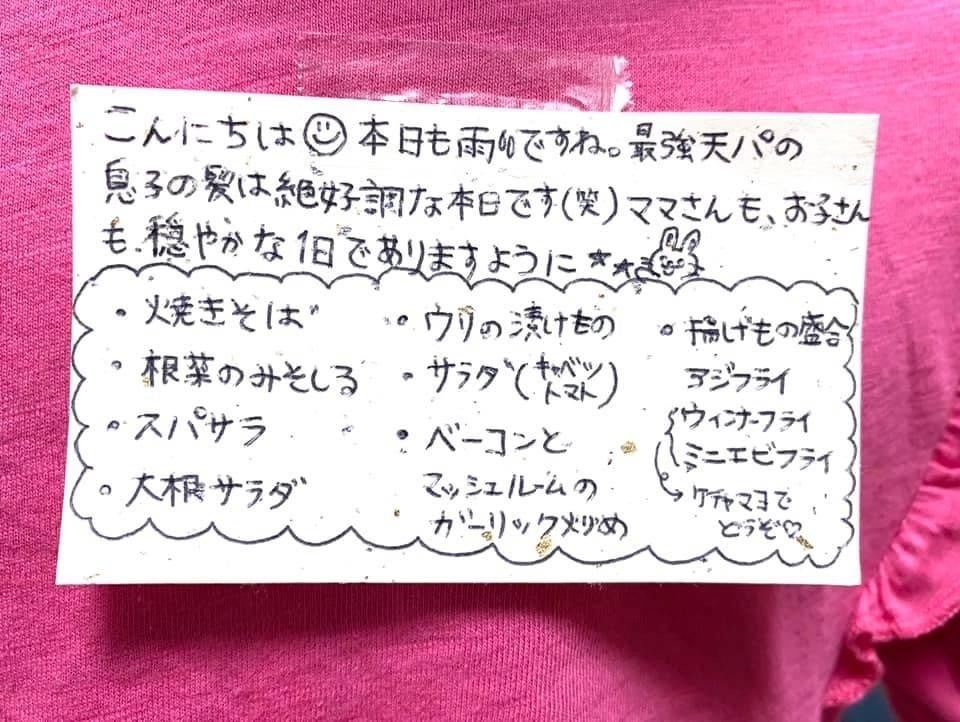 こんにちは☺本日も雨ですね。最強天パの
息子の髪は絶好調な本日です(笑)ママさんも、お子さん
も、穏やかな1日でありますように★★
・焼きそば
・根菜のみそしる
・スパサラ
・大根サラダ
・ウリの漬けもの
・サラダ(キャベツ
トマト)
・ベーコンと
マッシュルームの
ガーリック炒め
・揚げもの盛合
アジフライ
ウィンナーフライ
ミニエビフライ
→ケチャマヨで
どうぞ♡